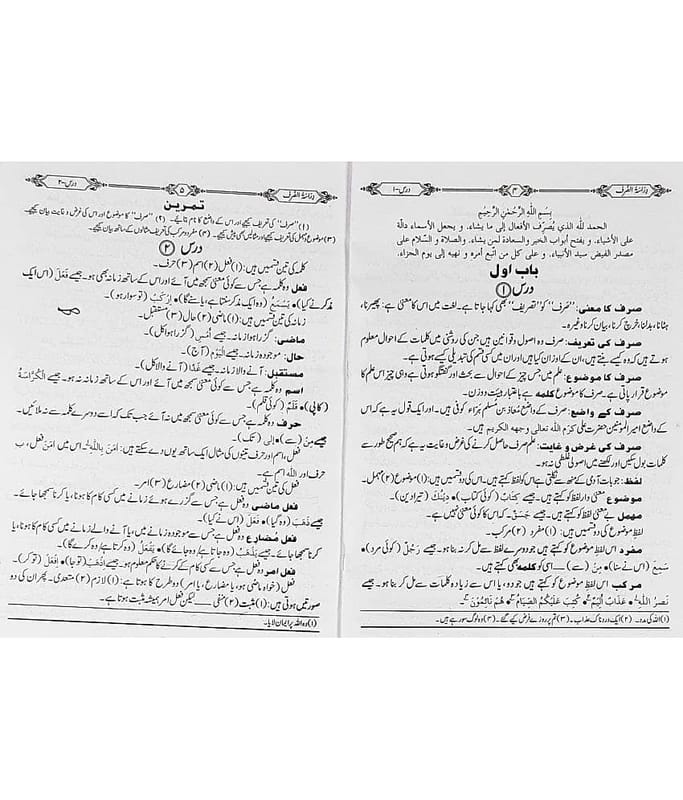 دراسۃ الصرف
۴
درس-۱
بسم اللہ الرحمٰن الرحیم
الحمد للّٰہ الذي یُصرِّف الأفعال إلی ما یشاء، و یجعل الأسماء دالّۃ
علی الأشیاء، و یفتح أبواب الخیر والسعادۃ لمن یشاء. والصلاۃ و السّلام علی
مصدر الفیض سید الأنبیاء، و علی کل من اتبع أمرہ و نھیہ إلی یوم الجزاء.
باب اول
درس ۱
صرف کا معنی: ”صَرف“ کو ”تصریف“ بھی کہا جاتا ہے۔ لغت میں اس کا معنی ہے: پھیرنا،
ہٹانا، بدلنا، خرچ کرنا، بیان کرنا وغیرہ۔
صرف کی تعریف: صرف وہ اصول و قوانین ہیں جن کی روشنی میں کلمات کے احوال معلوم
ہوتے ہیں کہ وہ کیسے بنتے ہیں، ان کے اوزان کیا ہیں اور ان میں کس قسم کی تبدیلی کیسے ہوتی ہے۔
صرف کا موضوع: علم میں جس چیز کے احوال سے بحث اور گفتگو ہوتی ہے وہی چیز اس علم کا
موضوع قرار پاتی ہے۔ صرف کا موضوع کلمہ ہے باعتبار ہیئت و وزن۔
صرف کے واضع: صرف کے واضع مُعاذ بن مُسلم ہَرّاء کوفی ہیں۔ اور ایک قول یہ ہے کہ اس
کے واضع امیر المؤمنین حضرت علی کرّم اللّٰہ تعالی وجھہ الکریم ہیں۔
صرف کی غرض و غایت: علم صرف حاصل کرنے کی غرض و غایت یہ ہے کہ ہم صحیح طور سے
کلمات بول سکیں اور لکھنے میں اصولی غلطی نہ ہو۔
لفظ: جو بات آدمی کے منھ سے نکلتی ہے اس کو لفظ کہتے ہیں۔ اس کی دو قسمیں ہیں: (۱) موضوع (۲) مہمل۔
موضوع معنی دار لفظ کو کہتے ہیں۔ جیسے کِتَابٌ (کوئی کتاب) • دِیْنُكَ (تیرا دین)۔
مہمل بے معنی لفظ کو کہتے ہیں۔ جیسے جَسَقٌ۔ کہ اس کا کوئی معنی نہیں ہے۔
لفظِ موضوع کی دو قسمیں ہیں: (۱) مفرد (۲) مرکب۔
مفرد اس لفظِ موضوع کو کہتے ہیں جو دوسرے لفظ سے مل کر نہ بنا ہو۔ جیسے رَجُلٌ (کوئی مرد) •
سَمِعَ (اس نے سنا) • مِنْ (سے) ــــ اسی کو کلمہ بھی کہتے ہیں۔
مرکب اس لفظِ موضوع کو کہتے ہیں جو دو، یا اس سے زیادہ کلمات سے مل کر بنا ہو۔ جیسے
نَصْرُ اللّٰہِ • عَذَابٌ اَلِیْمٌ • کُتِبَ عَلَیْکُمُ الصِّیَامُ • ھُمْ نَائِمُوْنَ۔
(۱) اللہ کی مدد۔ (۲) ایک دردناک عذاب۔ (۳) تم پر روزے فرض کیے گئے۔ (۴) وہ لوگ سو رہے ہیں۔
دراسۃ الصرف
۵
درس-۲
تمرین
(۱) ”صرف“ کی تعریف کیجیے اور اس کے واضع کا نام بتائیے۔ (۲) ”صرف“ کا موضوع اور اس کی غرض و غایت بیان کیجیے۔
(۳) موضوع و مہمل کی تعریف کیجیے اور مثالیں بھی پیش کیجیے۔ (۴) مفرد و مرکب کی تعریف مثالوں کے ساتھ بیان کیجیے۔
درس ۲
کلمہ کی تین قسمیں ہیں: (۱) فعل (۲) اسم (۳) حرف۔
فعل وہ کلمہ ہے جس سے کوئی معنی سمجھ میں آئے اور اس کے ساتھ زمانہ بھی ہو۔ جیسے فَعَلَ (اس ایک
مذکر نے کیا) • یَسْمَعُ (وہ ایک مذکر سنتا ہے یا سنے گا) • اِرْکَبْ (تو سوار ہو)۔
زمانہ کی تین قسمیں ہیں: (۱) ماضی (۲) حال (۳) مستقبل۔
ماضی: گزرا ہوا زمانہ۔ جیسے اَمْسِ (گزرا ہوا کل)۔
حال: موجودہ زمانہ۔ جیسے اَلْیَوْمَ (آج)۔
مستقبل: آنے والا زمانہ۔ جیسے غَدًا (آنے والا کل)۔
اسم وہ کلمہ ہے جس سے کوئی معنی سمجھ میں آئے اور اس کے ساتھ زمانہ نہ ہو۔ جیسے اَلْکُرَّاسَۃُ
(کاپی) • قَلَمٌ (کوئی قلم)۔
حرف وہ کلمہ ہے جس سے کوئی معنی سمجھ میں نہ آئے جب تک کہ اسے دوسرے کلمہ سے نہ ملائیں۔
جیسے مِنْ (سے) • اِلٰی (تک)۔
فعل، اسم اور حرف تینوں کی مثال ایک ساتھ یوں دے سکتے ہیں: اٰمَنَ بِاللّٰہِ۔ اس میں اٰمَنَ فعل، ب
حرف اور اللّٰہ اسم ہے۔
فعل کی تین قسمیں ہیں: (۱) ماضی (۲) مضارع (۳) امر۔
فعل ماضی وہ فعل ہے جس سے گزرے ہوئے زمانے میں کسی کام کا ہونا، یا کرنا سمجھا جائے۔
جیسے ذَھَبَ (وہ گیا) • فَعَلَ (اس نے کیا)۔
فعل مضارع وہ فعل ہے جس سے موجودہ زمانہ میں، یا آنے والے زمانے میں کسی کام کا ہونا، یا
کرنا سمجھا جائے۔ جیسے یَذْھَبُ (وہ جاتا ہے/وہ جائے گا) • یَفْعَلُ (وہ کرتا ہے/وہ کرے گا)۔
فعل امر وہ فعل ہے جس سے کسی کام کے کرنے کا حکم معلوم ہو۔ جیسے اِذْھَبْ (تو جا) • اِفْعَلْ (تو کر)۔
فعل (خواہ ماضی ہو، یا مضارع، یا امر) دو طرح کا ہوتا ہے: (۱) لازم (۲) متعدی۔ پھر ان کی دو
صورتیں ہوتی ہیں: (۱) مثبت (۲) منفی ــــ لیکن فعل امر ہمیشہ مثبت ہوتا ہے۔
(۱) وہ اللہ پر ایمان لایا۔